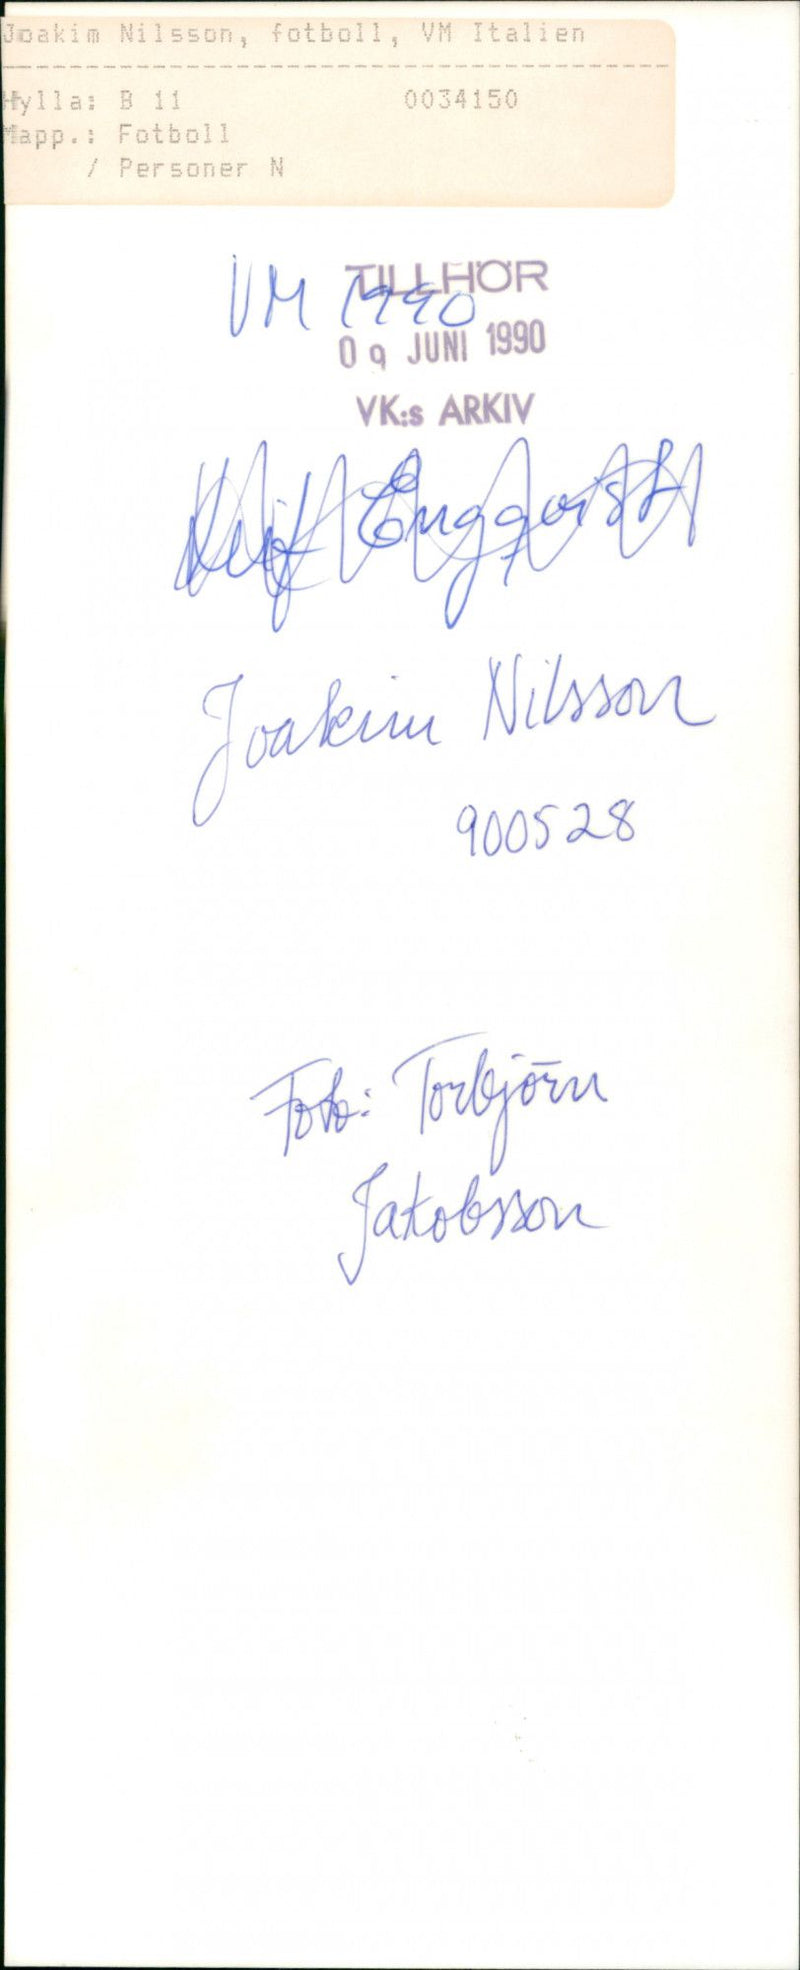 Joakim Nilsson, fotboll, VM Italien
Hylla: B 11 0034150
Mapp.: Fotboll
/ Personer N
VM 1990
TILLHÖR
09 JUNI 1990
VK:s ARKIV
Leif Engqvist
Joakim Nilsson
900528
Foto: Torbjörn
Jakobsson